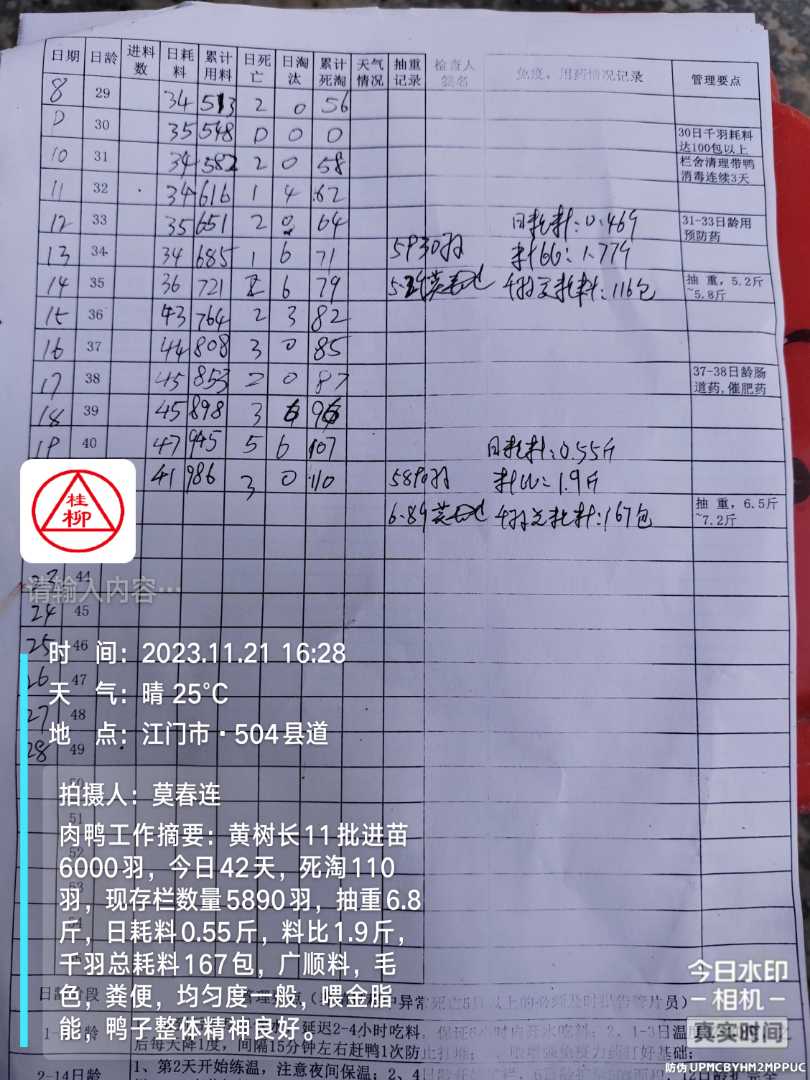 日期 日龄 进料数 日耗料 累计用料 日死亡 日淘汰 累计死淘 天气情况 抽重记录 检查人签名 免疫、用药情况记录 管理要点
8 29 34 513 2 0 56
30 35 548 0 0 0 30日千羽耗料达100包以上
10 31 34 582 2 0 58 栏舍清理带鸭消毒连续3天
11 32 34 616 1 4 62
12 33 35 651 2 0 64 日耗料:0.469 31-33日龄用预防药
13 34 34 685 1 6 71 5930羽 料比:1.779
14 35 36 721 2 6 79 千羽总耗料:116包 抽 重,5.2斤~5.8斤
15 36 43 764 2 3 82
16 37 44 808 3 0 85
17 38 45 853 2 0 87 37-38日龄肠道药,催肥药
18 39 45 898 3
19 40 47 945 5 6 107 日耗料:0.55斤
41 986 3 0 110 5890羽 料比:1.9斤
6.89 千羽总耗料:167包 抽 重,6.5斤~7.2斤
桂柳
23 44
请输入内容…
24 45
25 46
26 47
27 48
28 49
51
时 间:2023.11.21 16:28
天 气:晴 25℃
地 点:江门市·504县道
拍摄人:莫春连
肉鸭工作摘要:黄树长11批进苗
6000羽,今日42天,死淘110
羽,现存栏数量5890羽,抽重6.8
斤,日耗料0.55斤,料比1.9斤,
千羽总耗料167包,广顺料,毛
色,粪便,均匀度一般,喂金脂
能,鸭子整体精神良好。
今日水印
相机
真实时间
日龄阶段
延迟2-4小时吃料
后每天降1度,间隔15分钟左右赶鸭1次防止打堆
2-14日龄 1、第2天开始练温,注意夜间保温;
防伪 UPMCBYHM2MPPUC